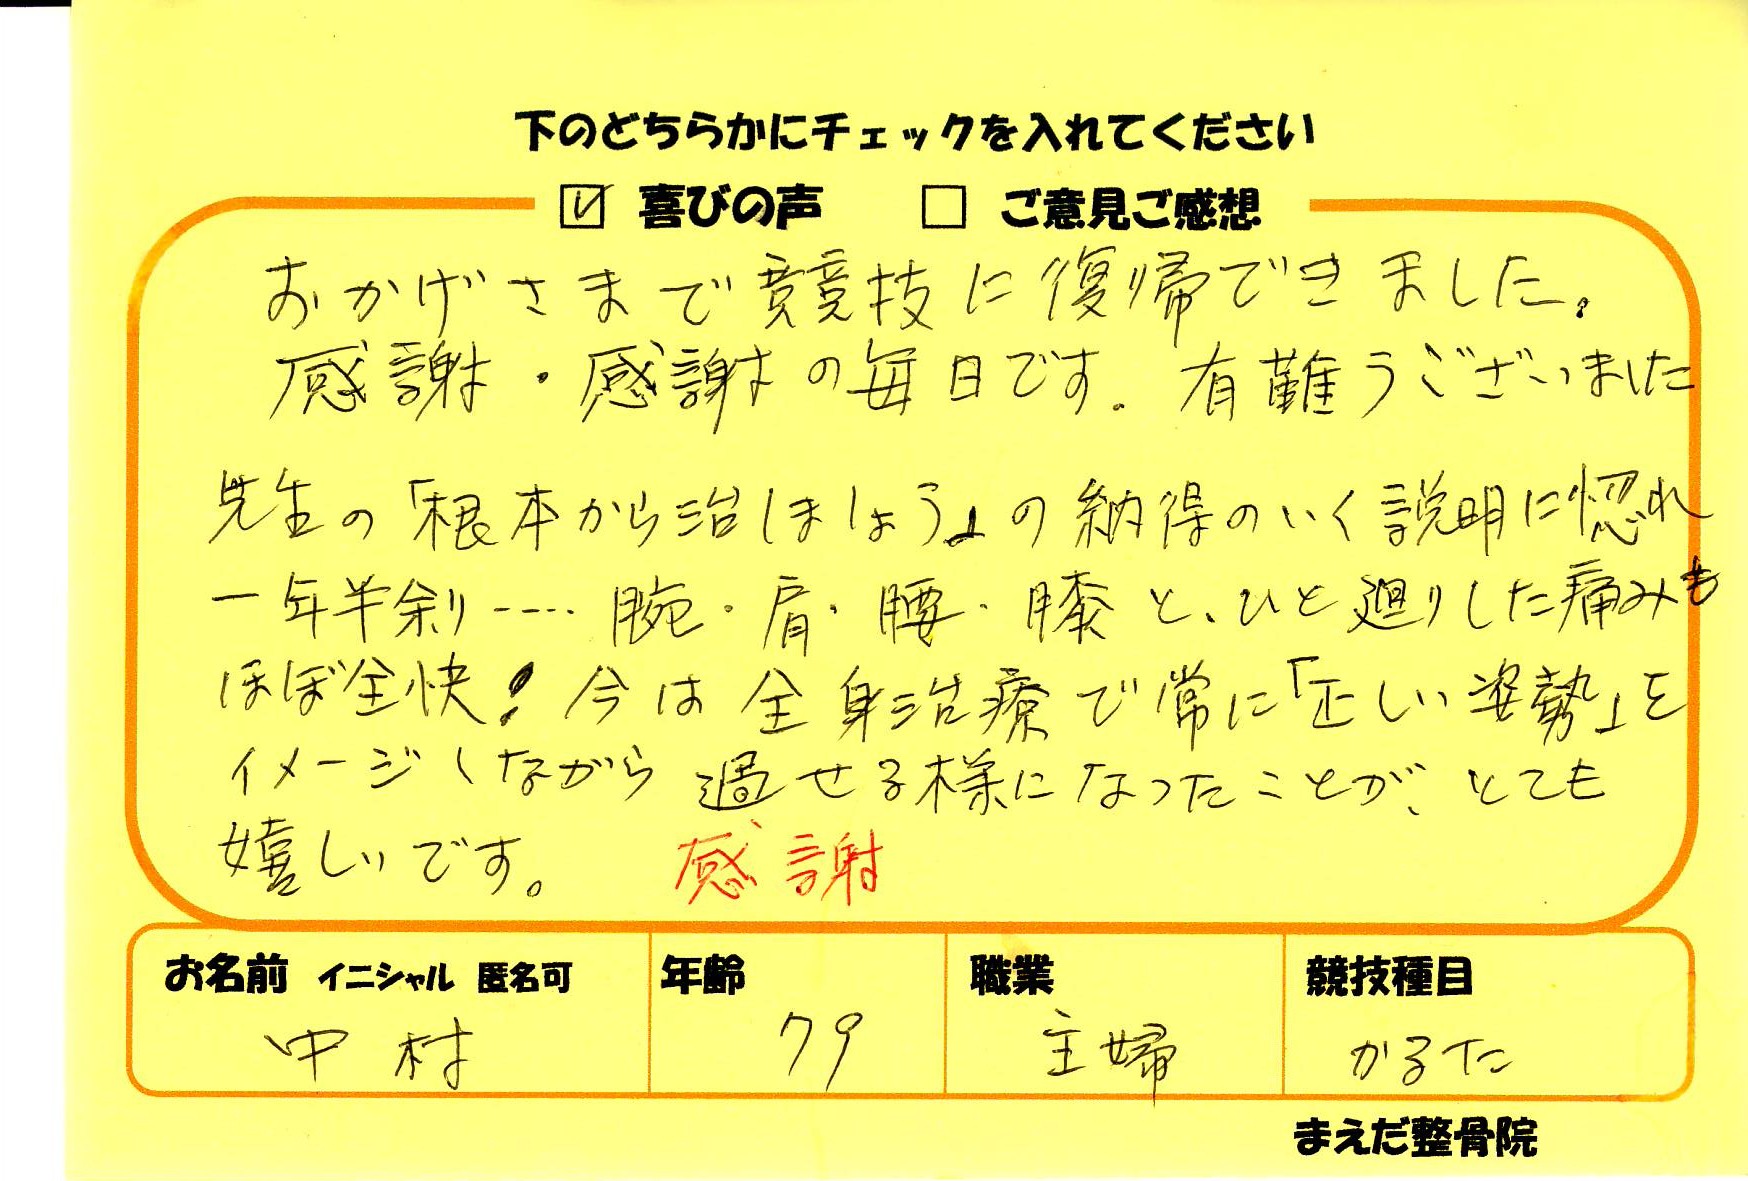 下のどちらかにチェックを入れてください
☑ 喜びの声 □ ご意見ご感想
おかげさまで競技に復帰できました。
感謝・感謝の毎日です。有難うございました
先生の「根本から治しましょう」の納得のいく説明に惚れ
一年半余り‥‥腕・肩・腰・膝と、ひと廻りした痛みも
ほぼ全快!今は全身治療で常に「正しい姿勢」を
イメージしながら過せる様になったことが、とても
嬉しいです。 感謝
お名前 イニシャル 匿名可 年齢 職業 競技種目
中村 79 主婦 かるた
まえだ整骨院